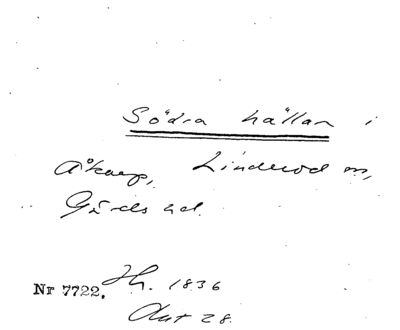 Södra hällan i
Åkarp, Linderöd sn,
Gärds hd.
Nr 7722. Hh. 1836
Akt 28.